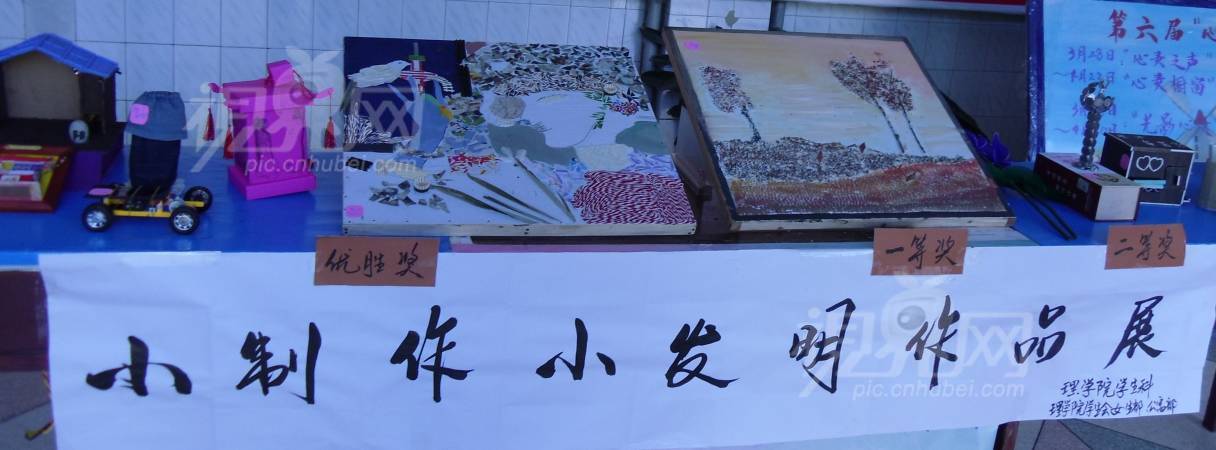 第六届"心
3月28日"心灵之声"
"心灵橱窗
优胜奖
一等奖
二等奖
小制作小发明作品展
理学院学生科
理学院学生会女生部 公寓部
视界网
pic.cnhubei.com
视界网
pic.cnhubei.com